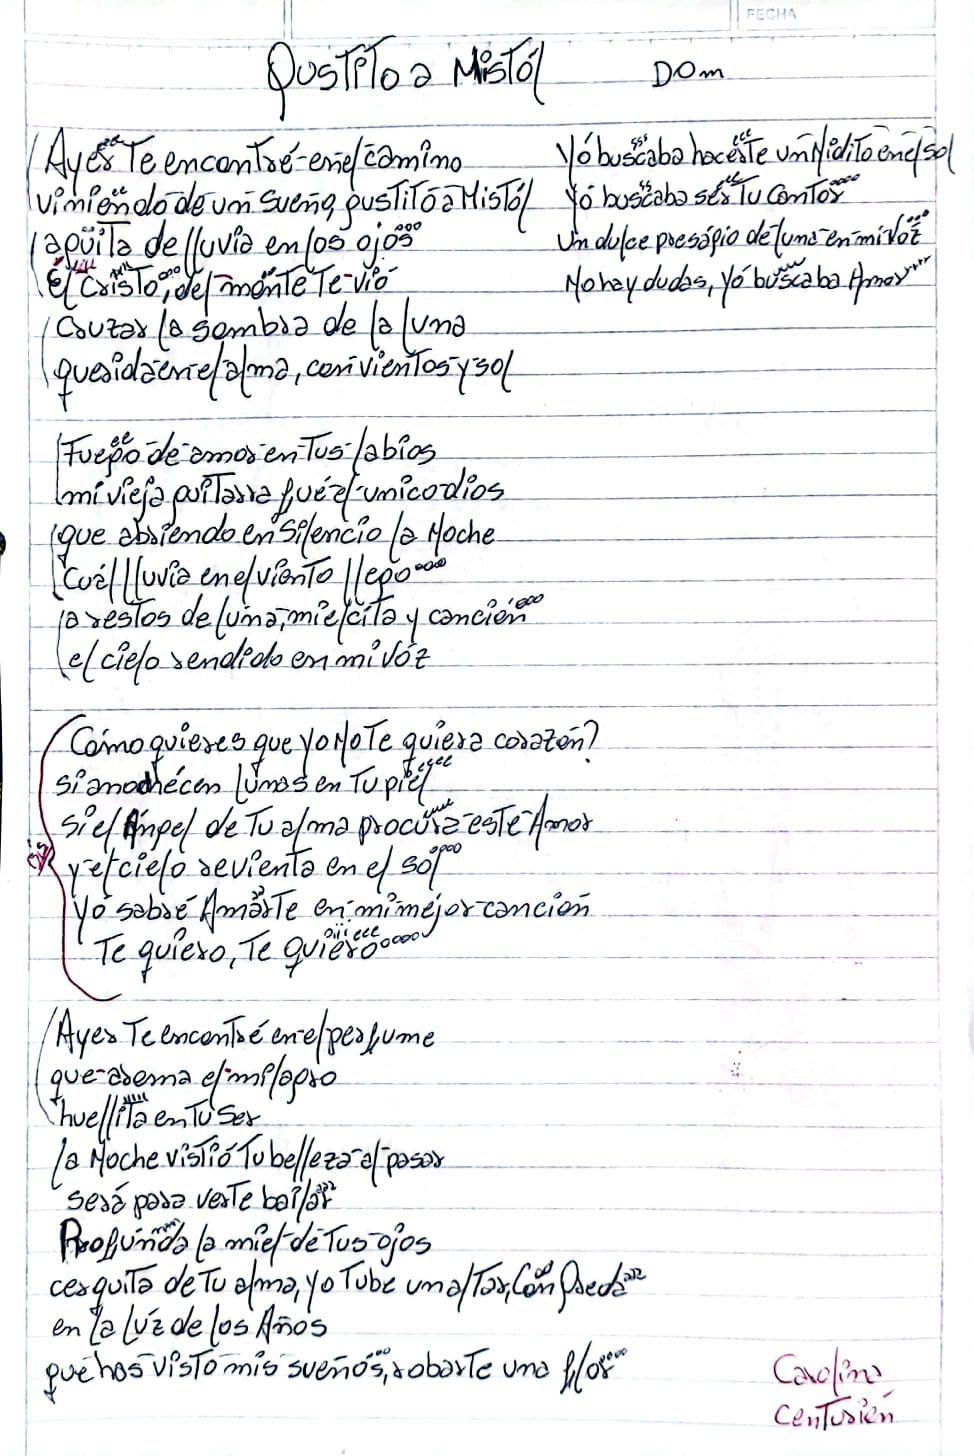 FECHA
Gustito a Mistól DOm
Ayer Te encontré en el camino
viniendo de un sueño, gustitó a Mistól
agüita de lluvia en los ojos
él Cristo, del monte Te vió
Cruzar la sombra de la luna
querida en el alma, con vientos y sol
Yó buscaba hacerte un Nidito en el sol
Yó buscaba ser Tu Cantor
Un dulce presagio de luna en mi Vóz
No hay dudas, Yó buscaba Amor
Fuego de amor en Tus labios
mi vieja guitarra fué el unico dios
que abriendo en Silencio la Noche
Cuál lluvia en el viento llegó
a restos de luna, mielcita y canción
el cielo rendido en mi vóz
Cómo quieres que Yo No Te quiera corazón?
si anochécen lunas en Tu piel
Si el Ángel de Tu alma procura este Amor
y el cielo revienta en el sol
Yó sabré Amarte en mi mejor canción
Te quiero, Te quiero
Bis
Ayer Te encontré en el perfume
que arema el milagro
huellita en Tu Ser
la Noche vistió Tu belleza al pasar
será para verte bailar
Profunda la miel de Tus ojos
cerquita de Tu alma, yo Tube un alTar, Con Greda
en la Lúz de los Años
qué has visto mis sueños, robarte una flor
Carolina
Centurión